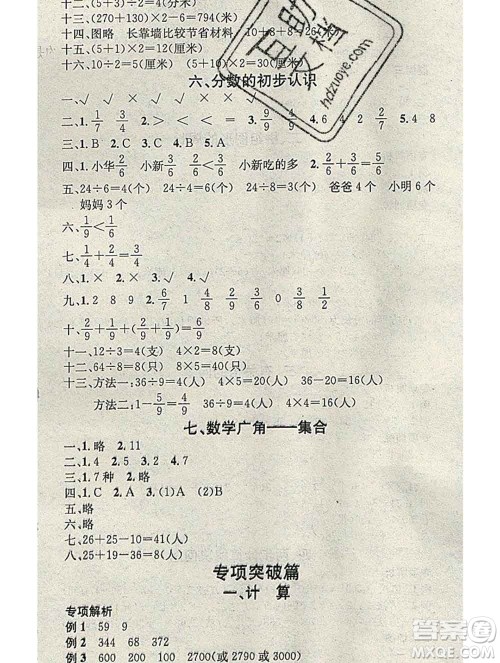 十二、(5+3)÷2=4(分米)
十三、(270+130)×2-6=794(米)
十四、图略 长靠墙比较节省材料 10+8
十五、(5+1)×2=12(厘米)
十六、10÷2=5(厘米) (5+10)×2=30(厘米)
六、分数的初步认识
一、√ √ √ ×
二、1. 1/7 3/4 2. > < < = 3. 9/9 4. 6 4 5. 4 8
三、1. A 2. C 3. A
四、1. 小华2/6 小新3/6 小新吃的多 2. 2/6+3/6=5/6
五、24÷6=4(个) 24÷4=6(个) 爸爸4个 小明6个
妈妈3个
六、1/9<6/9
七、1/4+2/4=3/4
八、1. × 2. √ 3. × 4. √
九、1. 2 8 9 2. 6/7 1 4/8 2/9 3. 0 6/8 1/2
十、2/9+1/9+(1/9+2/9)=6/9
十一、12÷3=4(支) 4×2=8(支)
十二、64÷8=8(只) 8×5=40(只)
十三、方法一:36÷9=4(人) 4×5=20(人) 36-20=16(人)
方法二:1-5/9=4/9 36÷9=4(人) 4×4=16(人)
七、数学广角——集合
一、1. 略 2. 11
二、1. 4 2. 5 3. 2 4. 7
三、1. 7种 2. 略
四、1. C 2. A 3. (1)A (2)B
五、略
六、略
七、26+25-10=41(人)
八、25+19-36=8(人)
专项突破篇
一、计 算
专项解析
例1 59 9
例2 344 68 372
例3 600 200 100 2700(或2790或3000)
互助文档
hdzuoye.com
作业帮